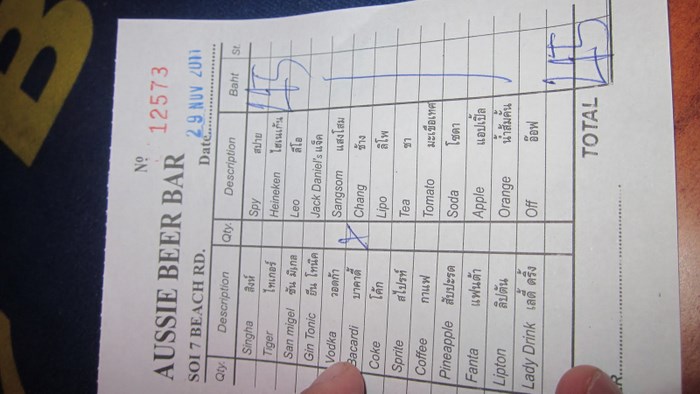 Nº 12573
AUSSIE BEER BAR
SOI 7 BEACH RD. Date 29 NOV 2011
Qty. Description Qty. Description Baht St.
Singha สิงห์ Spy สปาย 145
Tiger ไทเกอร์ Heineken ไฮเนเก้น
San migel ซัน มิเกล Leo ลีโอ
Gin Tonic ยีน โทนิค Jack Daniel's แจ็ค
Vodka วอดก้า Sangsom แสงโสม
Bacardi บาคาดี้ Chang ช้าง
Coke โค้ก Lipo ลิโพ
Sprite สไปรท์ Tea ชา
Coffee กาแฟ Tomato มะเขือเทศ
Pineapple สับปะรด Soda โซดา
Fanta แฟนต้า Apple แอปเปิ้ล
Lipton ลิปตัน Orange น้ำส้มคั้น
Lady Drink เลดี้ ดริ้ง Off อ๊อฟ
TOTAL 145